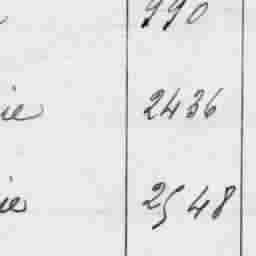 990
ie 2436
ie 2548